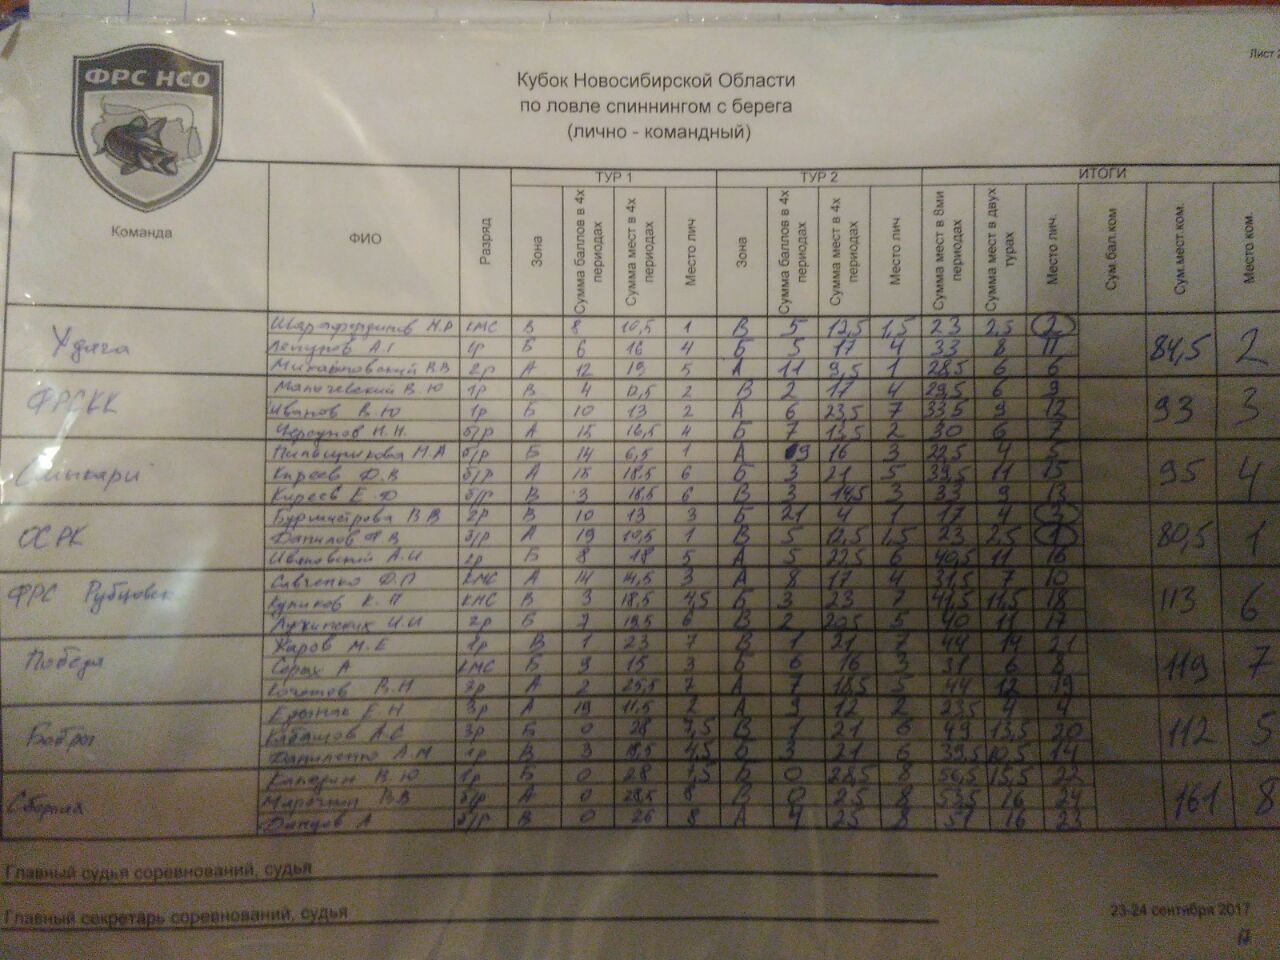 Лист 2
ФРС НСО
Кубок Новосибирской Области
по ловле спиннингом с берега
(лично - командный)
Команда ФИО Разряд ТУР 1 ТУР 2 ИТОГИ
Зона Сумма баллов в 4х периодах Сумма мест в 4х периодах Место лич Зона Сумма баллов в 4х периодах Сумма мест в 4х периодах Место лич Сумма мест в 8ми периодах Сумма мест в двух турах Место лич. Сум.бал.ком Сум.мест.ком. Место ком.
Удача 84,5 2
КМС В 8 10,5 1 В 5 12,5 1,5 23 2,5 2
Лепунов А.Г 1р Б 6 16 4 Б 5 17 4 33 8 11
Михайловский В.В 2р А 12 19 5 А 11 9,5 1 28,5 6 6
ФРСКК 93 3
В.Ю 1р В 4 12,5 2 В 2 17 4 29,5 6 9
Иванов В.Ю 1р Б 10 13 2 А 6 23,5 7 33,5 9 12
Н.Н. б/р А 15 16,5 4 Б 7 13,5 2 30 6 7
95 4
М.А б/р Б 14 6,5 1 А 9 16 3 22,5 4 5
Киреев Ф.В б/р А 15 18,5 6 Б 3 21 5 39,5 11 15
Киреев Е.Ф б/р В 3 18,5 6 В 3 14,5 3 33 9 13
ОСРК 80,5 1
Бурмистрова В В 2р В 10 13 3 Б 21 4 1 17 4 3
Данилов Ф.В б/р А 19 10,5 1 В 5 12,5 1,5 23 2,5 1
Ивановский А.И 2р Б 8 18 5 А 5 22,5 6 40,5 11 16
ФРС Рубцовск 113 6
Савченко Д.П КМС А 14 14,5 3 А 8 17 4 31,5 7 10
Куликов К.П КМС В 3 18,5 4,5 Б 3 23 7 41,5 11,5 18
И.И 2р Б 7 19,5 6 В 2 20,5 5 40 11 17
Победа 119 7
Жаров М.Е 1р В 1 23 7 В 1 21 7 44 14 21
А КМС Б 9 15 3 Б 6 16 3 31 6 8
Кочетов В.Н 3р А 2 25,5 7 А 7 18,5 5 44 12 19
Бобры 112 5
Е.Н 3р А 19 11,5 2 А 9 12 2 23,5 4 4
Кабашов А.С 3р Б 0 28 7,5 В 1 21 6 49 13,5 20
Даниленко А.М 1р В 3 18,5 4,5 Б 3 21 6 39,5 10,5 14
Сборная 161 8
В.Ю 1р Б 0 28 7,5 Б 0 28,5 8 56,5 15,5 22
В.В б/р А 0 28,5 8 В 0 25 8 53,5 16 24
Донцов А б/р В 0 26 8 А 4 25 8 51 16 23
Главный судья соревнований, судья
Главный секретарь соревнований, судья
23-24 сентября 2017